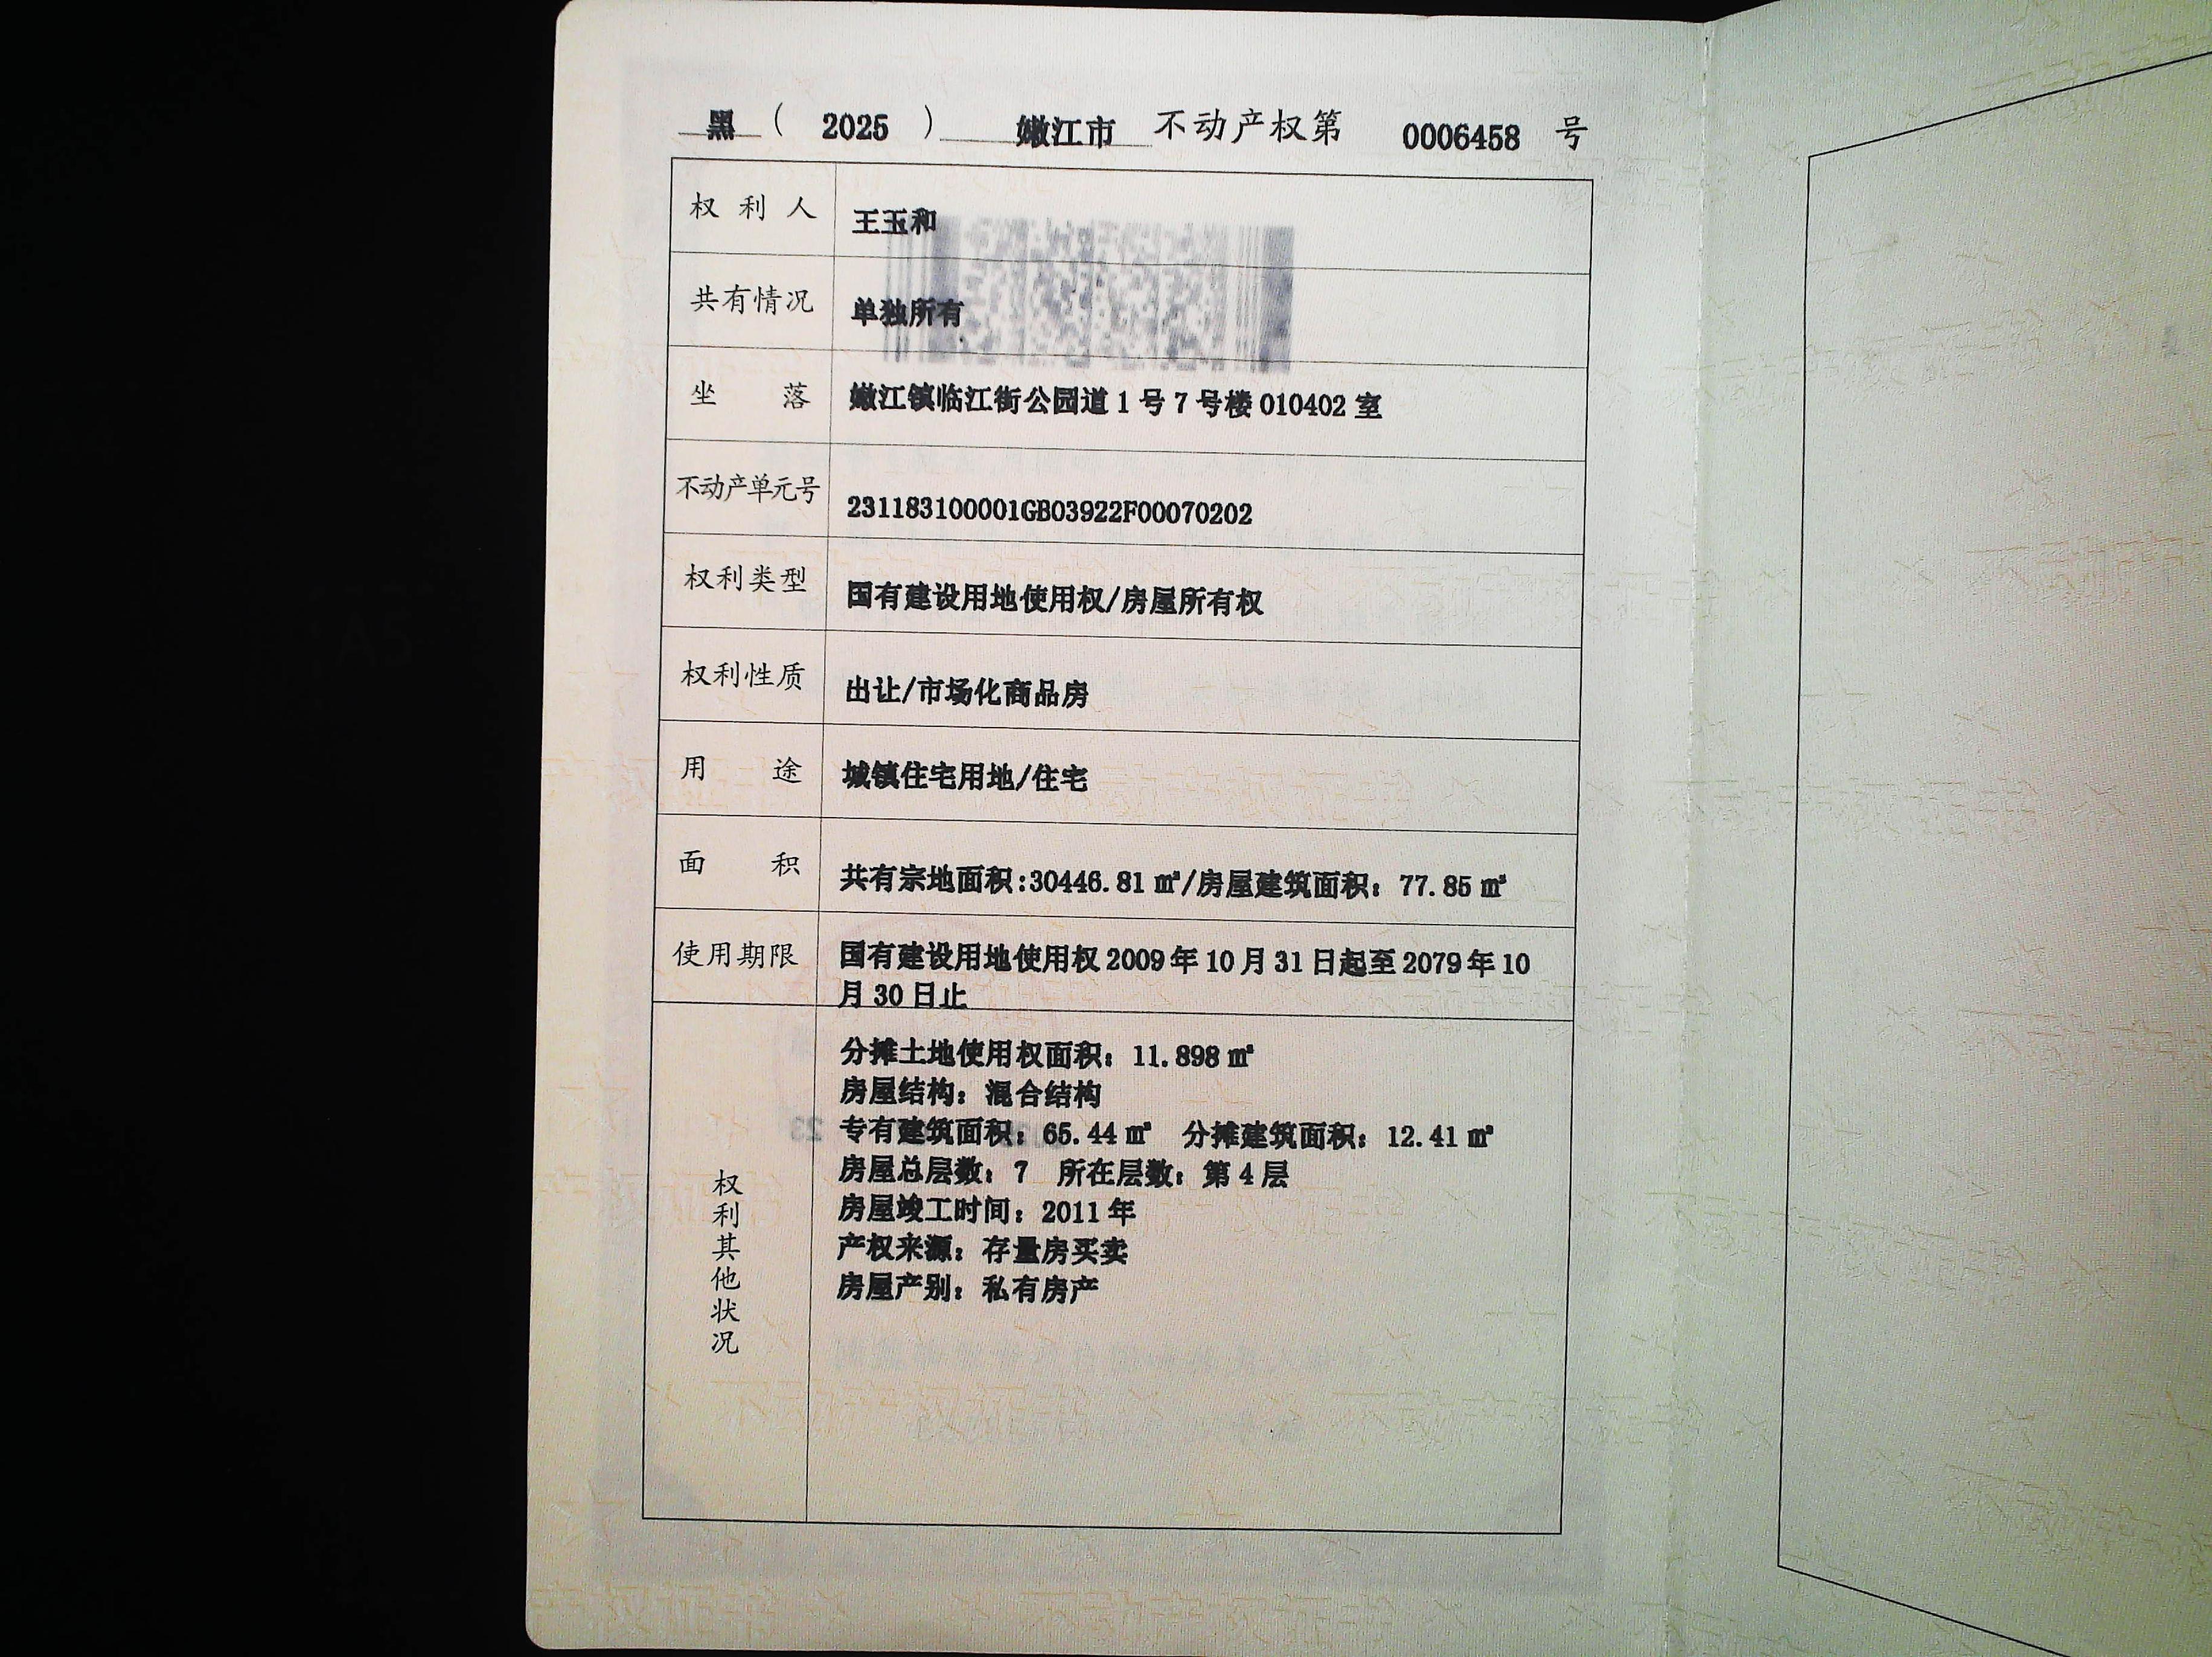 黑 ( 2025 ) 嫩江市 不动产权第 0006458 号
权利人 王玉和
共有情况 单独所有
坐落 嫩江镇临江街公园道1号7号楼010402室
不动产单元号 231183100001GB03922F00070202
权利类型 国有建设用地使用权/房屋所有权
权利性质 出让/市场化商品房
用途 城镇住宅用地/住宅
面积 共有宗地面积:30446.81㎡/房屋建筑面积：77.85㎡
使用期限 国有建设用地使用权2009年10月31日起至2079年10
月30日止
权利其他状况
分摊土地使用权面积：11.898㎡
房屋结构：混合结构
专有建筑面积：65.44㎡ 分摊建筑面积：12.41㎡
房屋总层数：7 所在层数：第4层
房屋竣工时间：2011年
产权来源：存量房买卖
房屋产别：私有房产